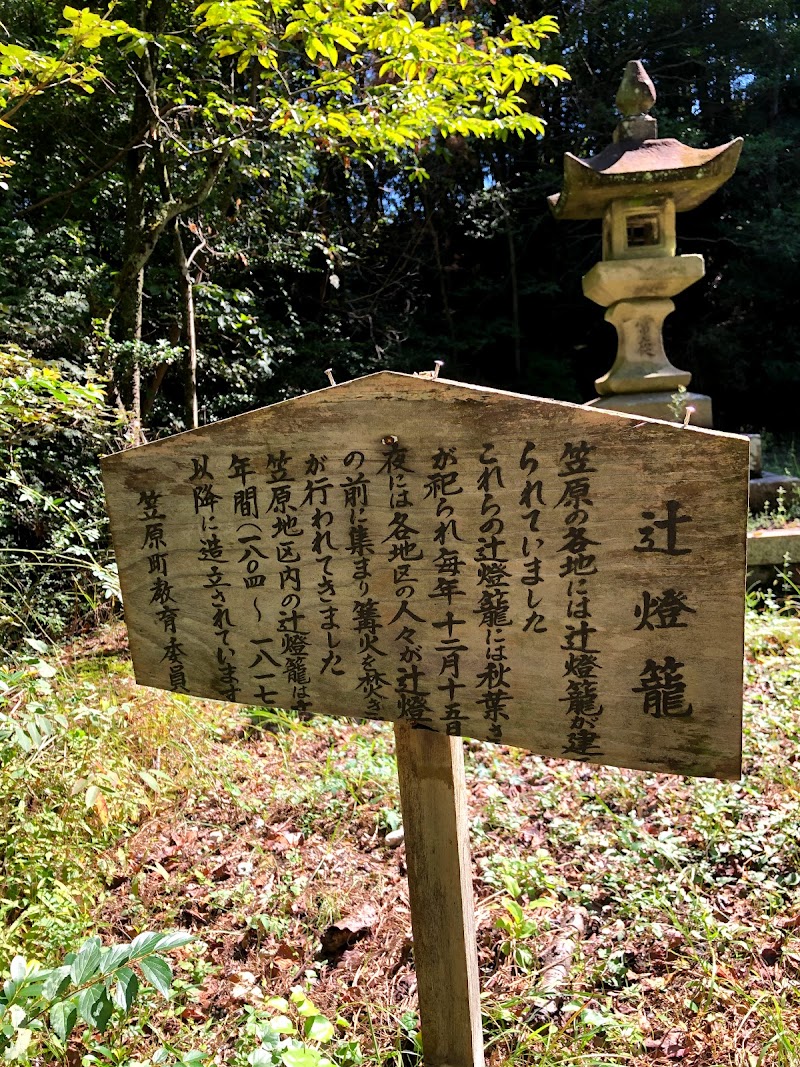 辻燈籠
笠原の各地には辻燈籠が建
られていました
これらの辻燈籠には秋葉さ
が祀られ毎年十二月十五日
夜には各地区の人々が辻燈
の前に集まり篝火を焚き
が行われてきました
笠原地区内の辻燈籠は
年間(一八〇四〜一八一七
以降に造立されています
笠原町教育委員